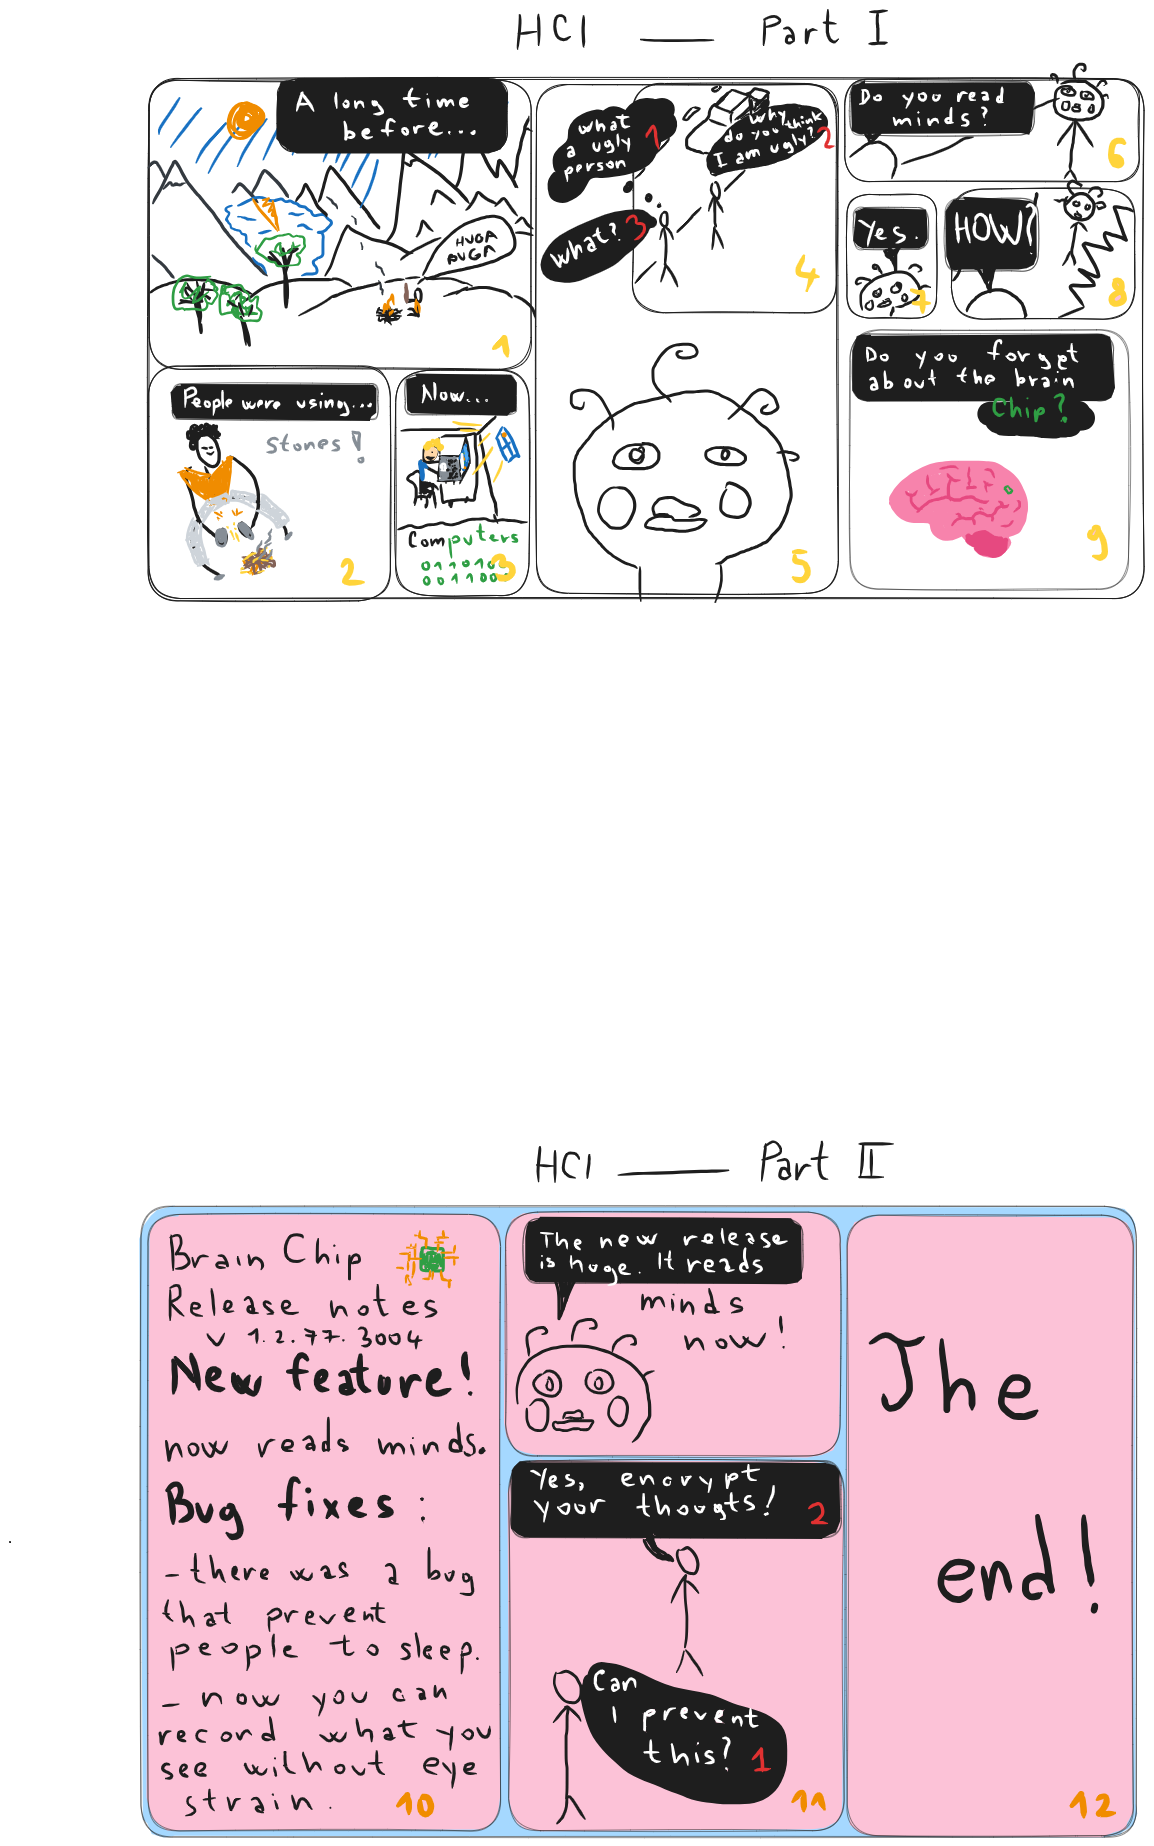 HCI — Part I
A long time
before...
HUGA
BUGA
1
People were using...
stones!
2
Now...
Computers
011010
0011000
3
what
a ugly
person
1
Why
do you think
I am ugly?
2
What?
3
4
5
Do you read
minds?
6
Yes.
7
HOW?
8
Do you forget
about the brain
Chip?
9
HCI — Part II
Brain Chip
Release notes
v 1.2.77.3004
New feature!
now reads minds.
Bug fixes:
- there was a bug
that prevent
people to sleep.
- now you can
record what you
see without eye
strain.
10
The new release
is huge. It reads
minds
now!
Yes, encrypt
your thougts!
2
Can
I prevent
this? 1
11
The
end!
12